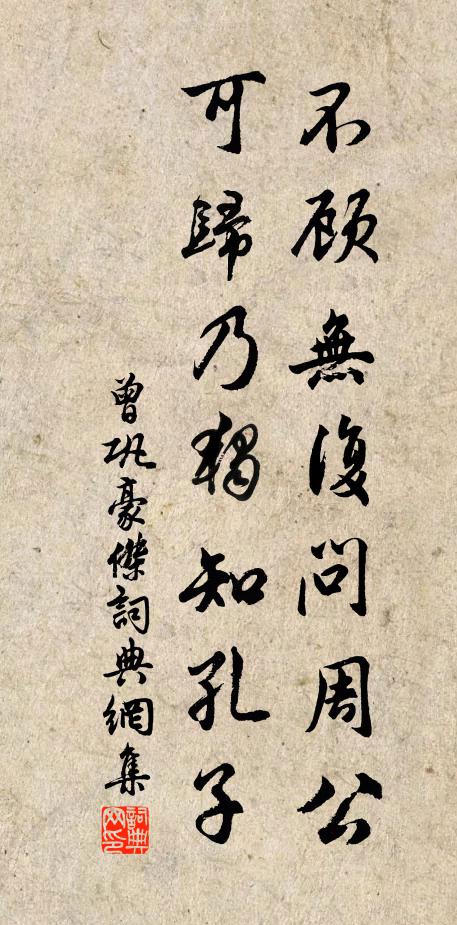 不顾無復問周公
可歸乃獨知孔子
曾巩豪傑詞典網集
詞典网印